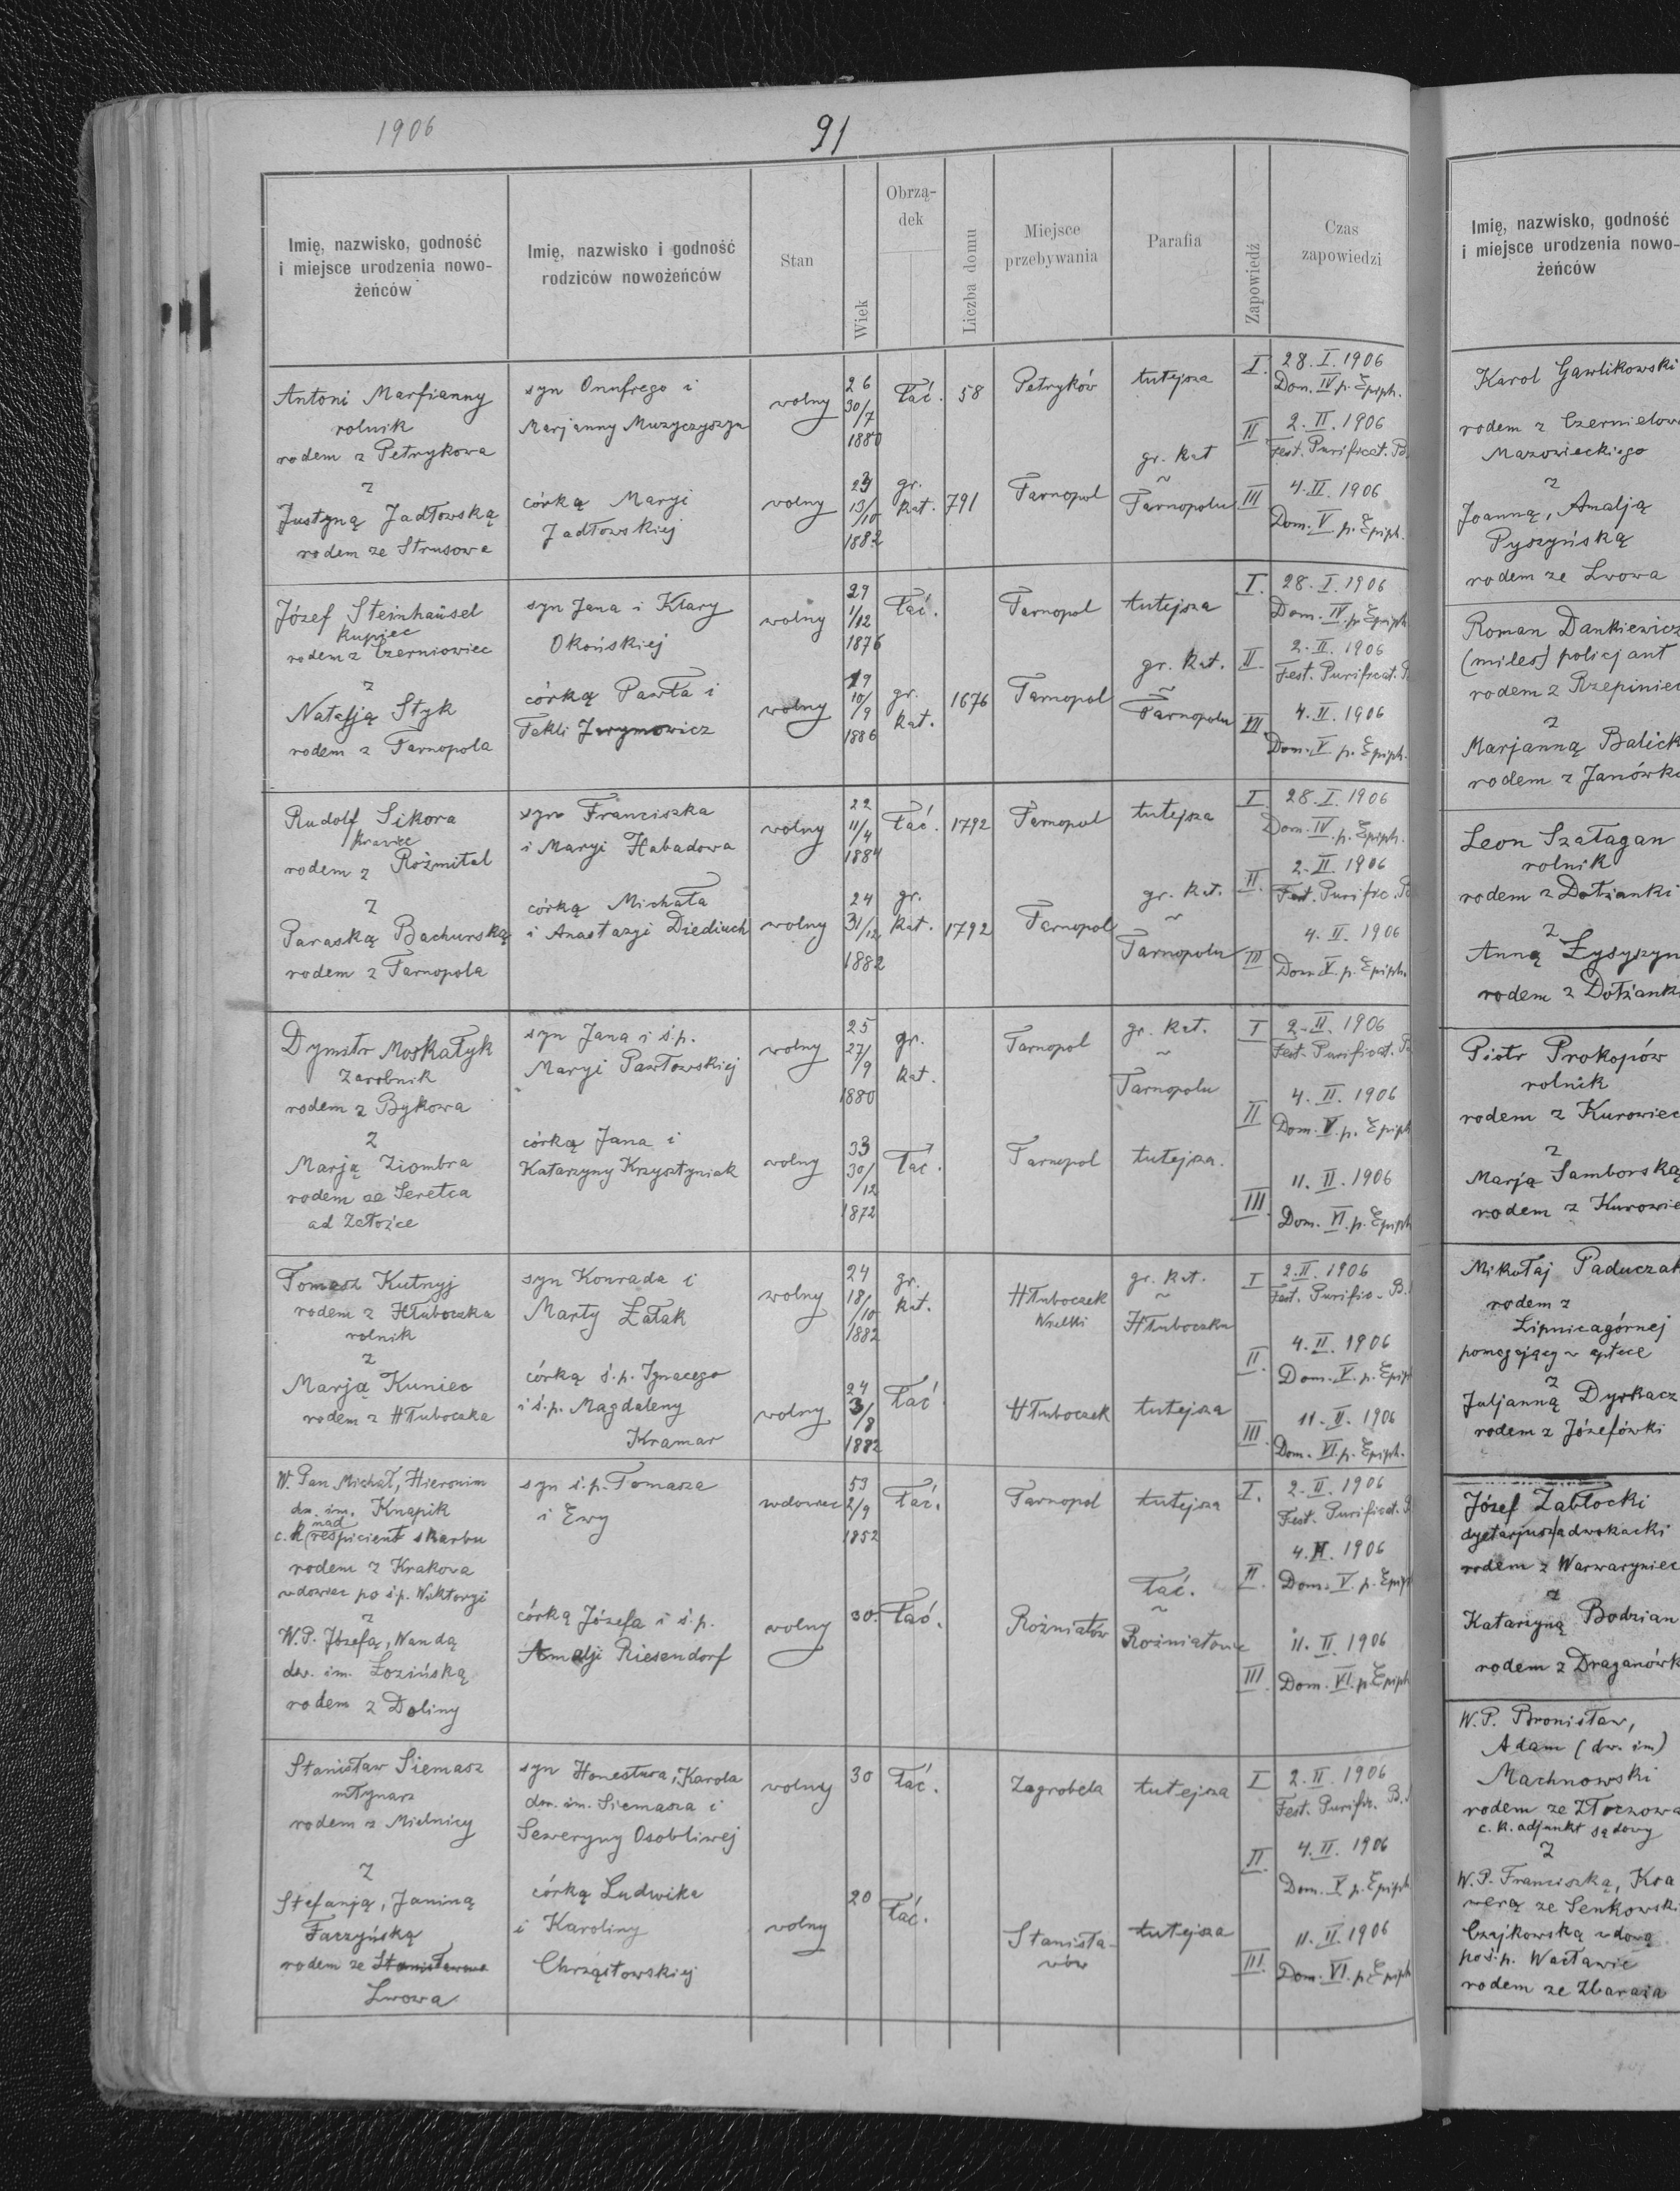 1906
91
Imię, nazwisko, godność
i miejsce urodzenia nowo-
żeńców
Imię, nazwisko i godność
rodziców nowożeńców
Stan
Wiek
Obrzą-
dek
Liczba domu
Miejsce
przebywania
Parafia
Zapowiedź
Czas
zapowiedzi
Antoni Marfianny
rolnik
rodem z Petrykowa
z
Justyną Jadłowską
rodem ze Strusowa
syn Onufrego i
Marjanny Muzyczyszyn
córką Maryi
Jadłowskiej
wolny
wolny
26
30/7
1880
23
13/10
1882
łać.
gr.
kat.
58
791
Petryków
Tarnopol
tutejsza
gr. kat
~
Tarnopolu
I. 28. I. 1906
Dom. IV p. Epiph.
II 2. II. 1906
Fest. Purificat. B.
III 4. II. 1906
Dom. V p. Epiph.
Józef Steinhaüsel
kupiec
rodem z Czerniowiec
z
Natalją Styk
rodem z Tarnopola
syn Jana i Klary
Okońskiej
córką Pawła i
Tekli Jarymowicz
wolny
wolny
29
1/12
1876
19
10/9
1886
łać.
gr.
kat.
1676
Tarnopol
Tarnopol
tutejsza
gr. kat.
~
Tarnopolu
I. 28. I. 1906
Dom. IV. p. Epiph
II. 2. II. 1906
Fest. Purificat.
III. 4. II. 1906
Dom. V p. Epiph.
Rudolf Sikora
krawiec
rodem z Rożmital
z
Paraską Bachurską
rodem z Tarnopola
syn Franciszka
i Maryi Habadowa
córką Michała
i Anastazyi Diediuch
wolny
wolny
22
11/4
1884
24
31/12
1882
łać.
gr.
kat.
1792
1792
Tarnopol
Tarnopol
tutejsza
gr. kat.
~
Tarnopolu
I. 28. I. 1906
Dom. IV. p. Epiph.
II. 2. II. 1906
Fest. Purific.
III 4. II. 1906
Dom. V. p. Epiph.
Dymitr Moskałyk
zarobnik
rodem z Bykowa
z
Marją Ziombra
rodem ze Seretca
ad Załoźce
syn Jana i ś.p.
Maryi Pawłowskiej
córką Jana i
Katarzyny Krzysztyniak
wolny
wolny
25
27/9
1880
33
30/12
1872
gr.
kat.
łać.
Tarnopol
Tarnopol
gr. kat.
~
Tarnopolu
tutejsza.
I 2. II. 1906
Fest. Purificat.
II 4. II. 1906
Dom. V. p. Epiph
III. 11. II. 1906
Dom. VI. p. Epiph
Tomasz Kutnyj
rodem z Hłuboczka
rolnik
z
Marją Kuniec
rodem z Hłuboczka
syn Konrada i
Marty Załak
córką ś.p. Ignacego
i ś.p. Magdaleny
Kramar
wolny
wolny
24
18/10
1882
24
3/8
1882
gr.
kat.
łać
Hłuboczek
Wielki
Hłuboczek
gr. kat.
~
Hłuboczku
tutejsza
I 2. II. 1906
Fest. Purific. B.
II. 4. II. 1906
Dom. V. p. Epiph
III. 11. II. 1906
Dom. VI. p. Epiph.
W. Pan Michał, Hieronim
dw. im. Knapik
nad
c. k respicient skarbu
rodem z Krakowa
wdowiec po ś.p. Wiktoryi
z
W. P. Józefą, Wandą
dw. im. Łozińską
rodem z Doliny
syn ś.p. Tomasza
i Ewy
córką Józefa i ś.p.
Amalji Riesendorf
wdowiec
wolny
53
2/9
1852
30.
łać.
łać.
Tarnopol
Rożniatów
tutejsza
łać.
~
Rożniatowie
I. 2. II. 1906
Fest. Purificat.
II. 4. II. 1906
Dom. V. p. Epiph
III. 11. II. 1906
Dom. VI. p. Epiph
Stanisław Siemasz
młynarz
rodem z Mielnicy
z
Stefanją, Janiną
Faczyńską
rodem ze Stanisławowa
Lwowa
syn Honestura, Karola
dw. im. Siemasza i
Seweryny Osobliwej
córką Ludwika
i Karoliny
Chrząstowskiej
wolny
wolny
30
20
łać.
łać.
Zagrobela
Stanisła-
wów
tutejsza
tutejsza
I 2. II. 1906
Fest. Purific. B.
II. 4. II. 1906
Dom. V p. Epiph
III. 11. II. 1906
Dom. VI. p. Epiph
Imię, nazwisko, godność
i miejsce urodzenia nowo-
żeńców
Karol Gawlikowski
rodem z Czernielowa
Mazowieckiego
z
Joanną, Amalją
Pyszyńską
rodem ze Lwowa
Roman Dankiewicz
(miles) policjant
rodem z Rzepiniec
z
Marjanną Balick
rodem z Janówk
Leon Szałagan
rolnik
rodem z Dołżanki
z
Anną Łysyszyn
rodem z Dołżank
Piotr Prokopów
rolnik
rodem z Kurowiec
z
Marją Samborską
rodem z Kurowie
Mikołaj Paduczak
rodem z
Lipnicagórnej
pomagający w aptece
z
Juljanną Dyrkacz
rodem z Józefówki
Józef Zabłocki
dyetarjusz adwokacki
rodem z Warwaryniec
z
Katarzyną Bodzian
rodem z Draganówk
W. P. Bronisław,
Adam (dw. im)
Machnowski
rodem ze Złoczowa
c. k. adjunkt sądowy
z
W. P. Franciszką, Ksa
werą ze Senkowski
Czajkowską wdową
po ś.p. Wacławie
rodem ze Zbaraża